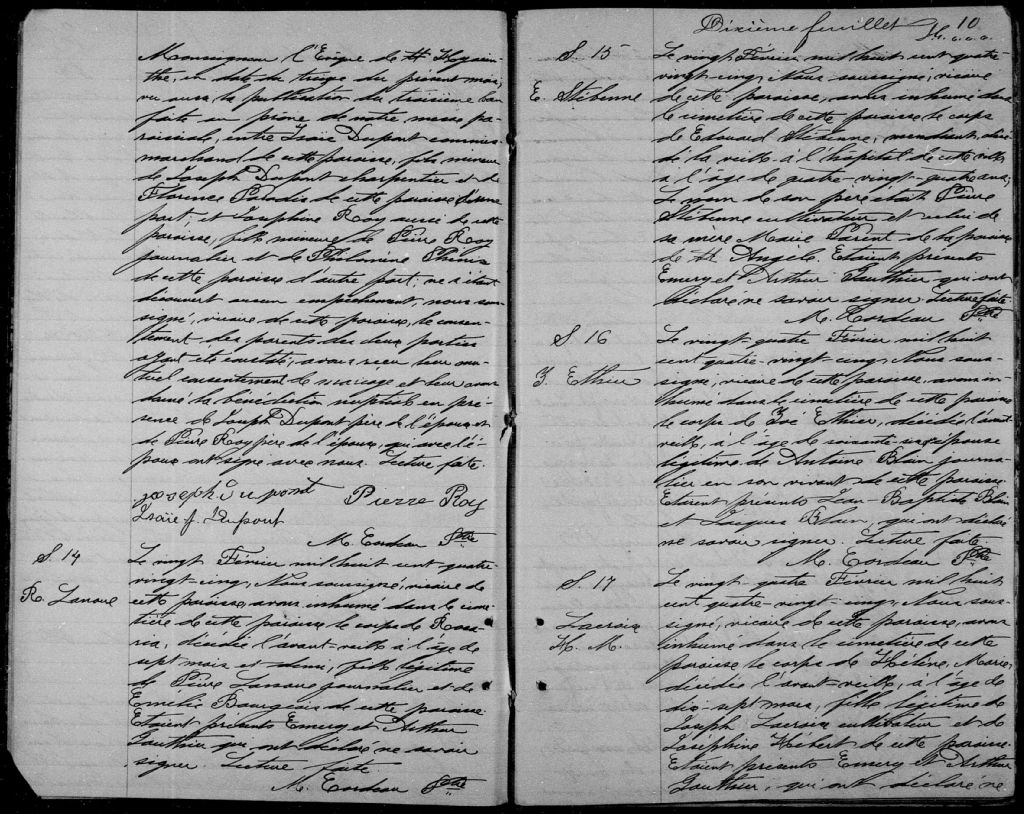 Monseigneur l'Evêque de St Hyacin-
the, en date du treize du présent mois,
vu aussi la publication du troisième ban
faite au prône de notre messe pa-
roissiale, entre Isaïe Dupont commis-
marchand de cette paroisse, fils mineur
de Joseph Dupont charpentier et de
Florence Paradis de cette paroisse d'une
part; et Joséphine Roy aussi de cette
paroisse, fille mineure de Pierre Roy
journalier et de Philomène
de cette paroisse d'autre part; ne s'étant
découvert aucun empêchement, nous sous-
signé, vicaire de cette paroisse, le consen-
tement des parents des deux parties
ayant été constaté, avons reçu leur mu-
tuel consentement de mariage et leur avons
donné la bénédiction nuptiale en pré-
sence de Joseph Dupont père de l'époux et
de Pierre Roy père de l'épouse, qui avec l'é-
poux ont signé avec nous. Lecture faite.
Joseph Dupont Pierre Roy
Isaïe J. Dupont
M. Cordeau Ptre
S. 14
R. Lanoue
Le vingt Février mil huit cent quatre
vingt-cinq, Nous soussigné, vicaire de
cette paroisse, avons inhumé dans le cime-
tière de cette paroisse le corps de Rosa-
ria, décédée l'avant-veille à l'âge de
sept mois et demi, fille légitime
de Pierre Lanoue journalier et de
Emélie Bourgeois de cette paroisse.
Etaient présents Emery et Arthur
Gauthier qui ont déclaré ne savoir
signer. Lecture faite
M. Cordeau Ptre
Dixième feuillet 10
S. 15
E. Stébenne
Le vingt Février mil huit cent quatre
vingt-cinq, Nous soussigné, vicaire
de cette paroisse, avons inhumé dans
le cimetière de cette paroisse le corps
de Edouard Stébenne, mendiant, décé-
dé la veille à l'hôpital de cette ville
à l'âge de quatre-vingt-quatre ans;
Le nom de son père était Pierre
Stébenne cultivateur et celui de
sa mère Marie Parent de la paroisse
de St Angèle. Etaient présents
Emery et Arthur Gauthier qui ont
déclaré ne savoir signer. Lecture faite
M. Cordeau Ptre
S. 16
Z. Ethier
Le vingt-quatre Février mil huit
cent quatre-vingt-cinq, Nous sous-
signé, vicaire de cette paroisse, avons in-
humé dans le cimetière de cette paroisse
le corps de Zoé Ethier, décédée l'avant-
veille, à l'âge de soixante épouse
légitime de Antoine Blain journa-
lier en son vivant de cette paroisse.
Etaient présents Jean-Baptiste Blain
et Jacques Blain, qui ont déclaré
ne savoir signer. Lecture faite.
M. Cordeau Ptre
S. 17
Lacroix
H. M.
Le vingt-quatre Février mil huit
cent quatre-vingt-cinq, Nous sous-
signé, vicaire de cette paroisse, avons
inhumé dans le cimetière de cette
paroisse le corps de Hélène, Marie,
décédée l'avant-veille, à l'âge de
dix-sept mois, fille légitime de
Joseph Lacroix cultivateur et de
Joséphine Hébert de cette paroisse.
Etaient présents Emery et Arthur
Gauthier, qui ont déclaré ne